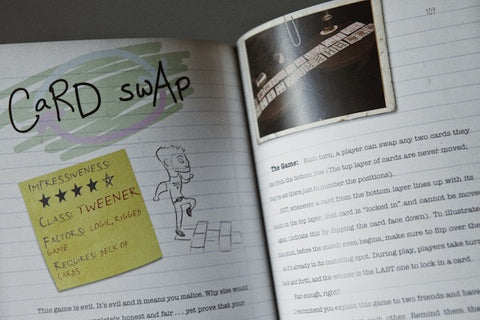 CaRD SwAp
IMPRESSIVENESS:
CLASS: TWEENER
FACTORS: LOGIC, RIGGED
GAME
REQUIRES: DECK OF
CARDS
This game is evil. It's evil and it means you malice. Why else would
completely honest and fair . . . yet prove that your
103
The Game: Each turn, a player can swap any two cards they
see from the bottom row (The top layer of cards are never moved;
they're set there just to number the positions).
BUT: whenever a card from the bottom layer lines up with its
match on the top layer, that card is "locked in" and cannot be moved
again (indicate this by flipping the card face down). To illustrate
this point, before the match even begins, make sure to flip over the
already in its matching spot. During play, players take turn
back and forth, and the winner is the LAST one to lock in a card.
Fair enough, right?
I recommend you explain this game to two friends and have
each other. Remind them